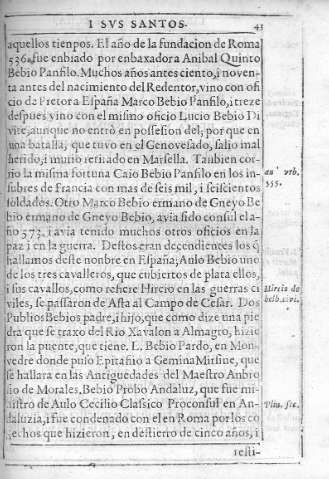 I SVS SANTOS. 45
aquellos tienpos. El año de la fundacion de Roma
536. fue enbiado por enbaxador a Anibal Quinto
Bebio Panfilo. Muchos años antes ciento, i noven-
ta antes del nacimiento del Redentor, vino con ofi
cio de Pretor a España Marco Bebio Panfilo, i treze
despues vino con el mismo oficio Lucio Bebio Di
vite, aunque no entrò en possesion del, por que en
una batalla, que tuvo en el Genovesado, salio mal
herido, i murio retirado en Marsella. Tanbien cor-
rio la misma fortuna Caio Bebio Panfilo en los in-
subres de Francia con mas de seis mil, i seiscientos
soldados. Otro Marco Bebio ermano de Gneyo Be
bio ermano de Gneyo Bebio, avia sido consul el a-
ño 573, i avia tenido muchos otros oficios en la
paz i en la guerra. Destos eran decendientes los q̃
hallamos deste nonbre en España; Aulo Bebio uno
de los tres cavalleros, que cubiertos de plata ellos,
i sus cavallos, como refiere Hircio en las guerras ci
viles, se passaron de Asta al Campo de Cesar. Dos
Publios Bebios padre, i hijo, que como dize una pie
dra que se traxo del Rio Xavalon a Almagro, hizie
ron la puente, que tiene. L. Bebio Pardo, en Mon-
vedre donde puso Epitafio a Gemina Mirsine, que
se hallara en las Antiguedades del Maestro Anbro
sio de Morales. Bebio Probo Andaluz, que fue mi-
nistro de Aulo Cecilio Classico Proconsul en An-
daluzia, i fue condenado con el en Roma por los co
echos que hizieron, en destierro de cinco años, i
resti-
an' vrb.
555.
Hircio de
belb.
Plin. sec.